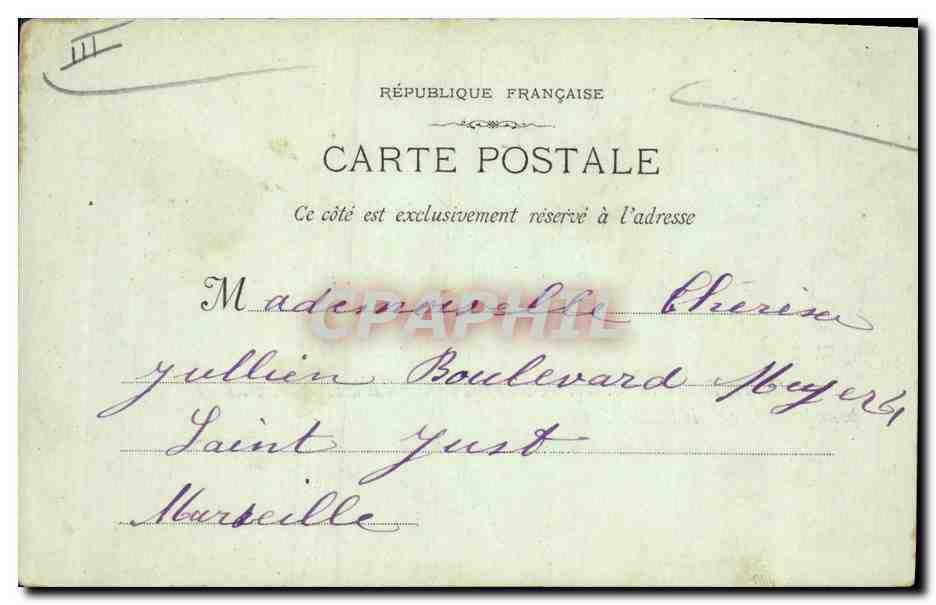 III
RÉPUBLIQUE FRANÇAISE
CARTE POSTALE
Ce côté est exclusivement réservé à l'adresse
CPAPHIL
Mademoiselle Thérèse
Jullien Boulevard Meyer
Saint Just
Marseille